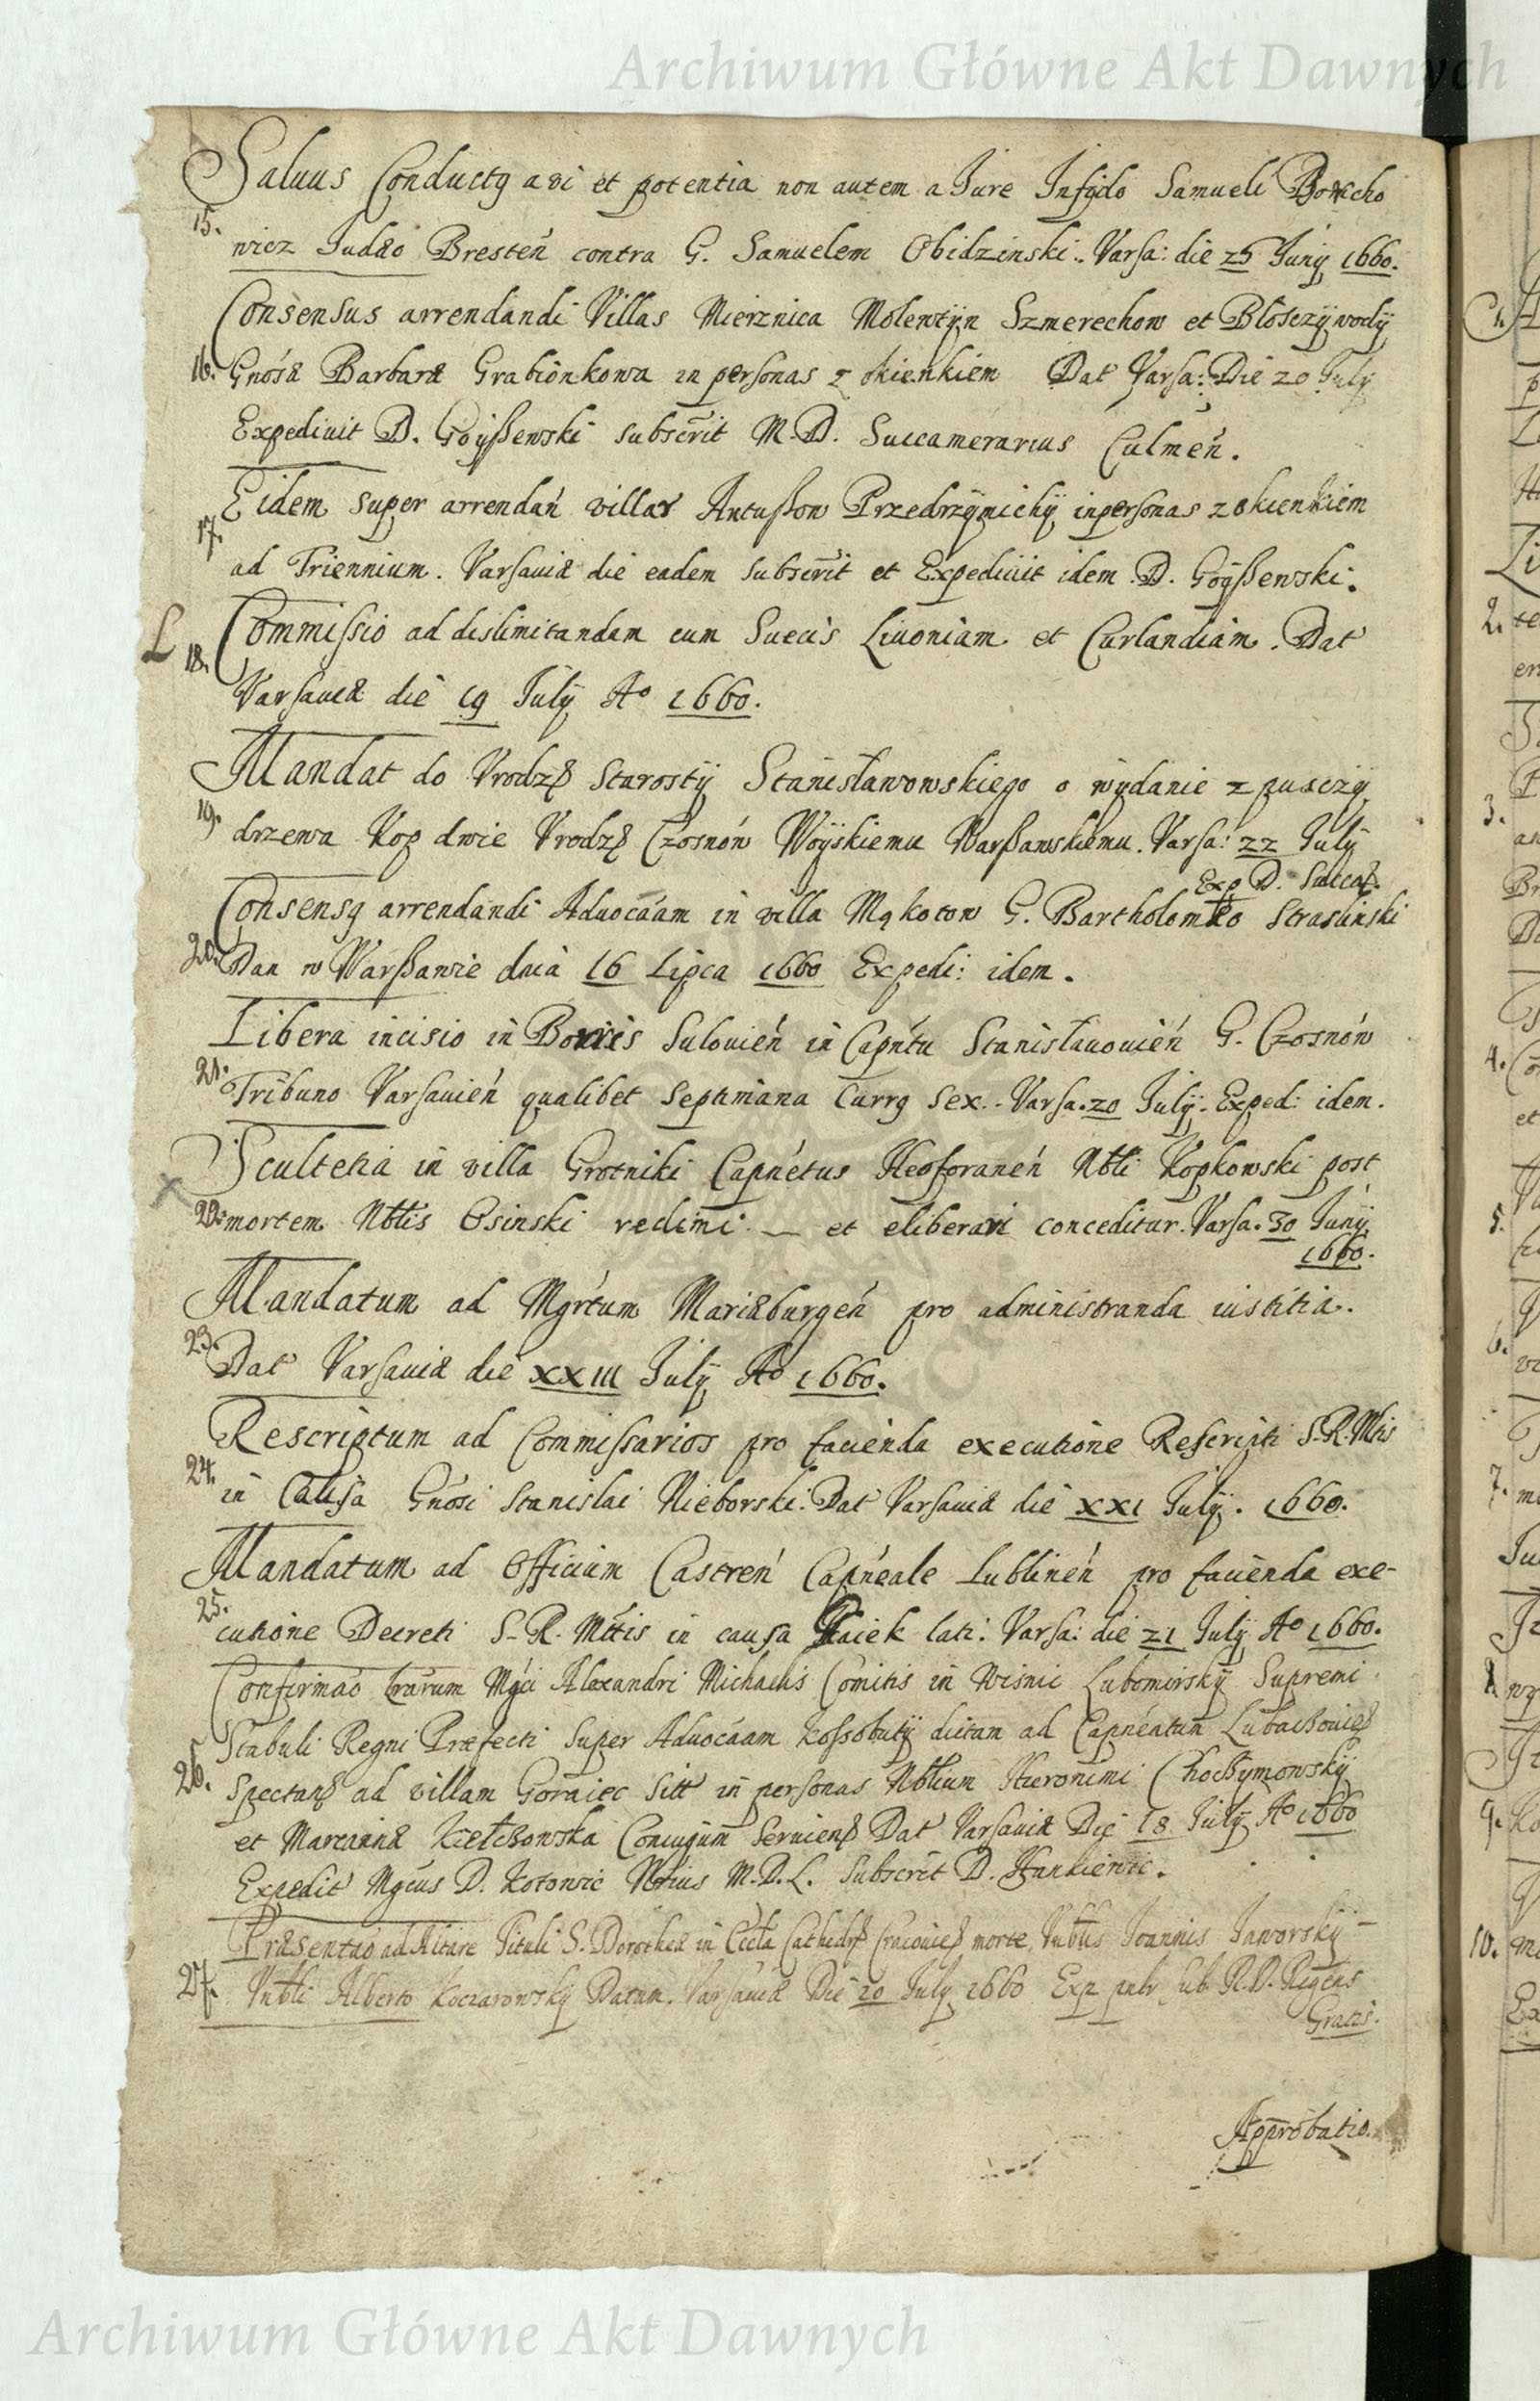 Archiwum Główne Akt Dawnych
Saluus Conductꝯ a vi et potentia non autem a Jure Infido Samueli Borucho
15. wicz Judæo Bresteń contra G. Samuelem Obidzinski. Varsa: die 25 Junÿ 1660.
Consensus arrendandi Villas Mierznica Molentÿn Szmerechow et Błoszczÿwodÿ
16. Gnósæ Barbaræ Grabionkowa in personas z okienkiem Dat Varsa: Die 20 Julÿ
Expediuit D. Goÿßewski subscrit M. D. Succamerarius Culmeń.
17. Eidem super arrendań villas Antußow Przedrzÿmichÿ in personas z okienkiem
ad Triennium. Varsauiæ die eadem subscrit et Expediuit idem D. Goÿßewski.
L 18. Commissio ad dislimitandam cum Suecis Liuoniam et Curlandiam. Dat
Varsauiæ die 19 Julÿ Aº 1660.
Mandat do Vrodzꝭ Starostÿ Stanisławowskiego o wÿdanie z pusczÿ
19. drzewa Kop dwie Vrodzꝭ Czosnów Woÿskiemu Warßawskiemu. Varsa: 22 Julÿ
Exp D. Succaꝭ.
Consensꝯ arrendandi Aduocáam in villa Mąkotow G. Bartholomæo Straslinski
20. Dan w Warßawie dnia 16 Lipca 1660 Expedi: idem.
Libera incisio in Borris Sulouień in Capńtu Stanisłauouień G. Czosnów
21. Tribuno Varsauień qualibet septimana Currꝯ sex. Varsa. 20 Julÿ. Exped: idem.
Scultetia in villa Grotniki Capnétus Neoforaneń Nbli Kopkowski post
22. mortem Nblis Osinski redimi — et eliberari conceditur. Varsa. 30 Junÿ
1660.
Mandatum ad Mgrtum Mariæburgeń pro administranda iustitia.
23. Dat Varsauiæ die XXIII Julÿ Aº 1660.
Rescriptum ad Commissarios pro facienda executione Rescripti S. R. Mtis
24. in Causa Gnósi Stanislai Nieborski. Dat Varsauiæ die XXI Julÿ. 1660.
Mandatum ad Officium Castreń Capńeale Lublineń pro facienda exe-
25. cutione Decreti S. R. Mttis in causa lati. Varsa: die 21 Julÿ Aº 1660.
Confirmaó Lrarum Mgci Alexandri Michaelis Comitis in Wisnic Lubomirskÿ Supremi
Stabuli Regni Præfecti super Aduocáam Kossobutÿ dictam ad Capnéatum Lubaczouieꝭ
26. Spectanꝭ ad villam Goraiec sitt in personas Nblium Hieronimi Chochÿmowskÿ
et Mariannæ Kiełczowska Coniugum seruienꝭ Dat Varsauiæ Die 18 Julÿ Aº 1660
Expedit Mgcus D. Kotowic Ntrius M. D. L. Subscrit D. Hankiewic.
Præsentaó ad Altare Tituli S. Dorotheæ in Eccla Cathedrꝭ Cracouieꝭ morte Vnblis Joannis Jaworskÿ
27. Vnbli Alberto Koczarowskÿ Datum. Varsauiæ Die 20 Julÿ 1660 Exp sub. R. D. Regens
Gratis.
Approbatio.
Archiwum Główne Akt Dawnych